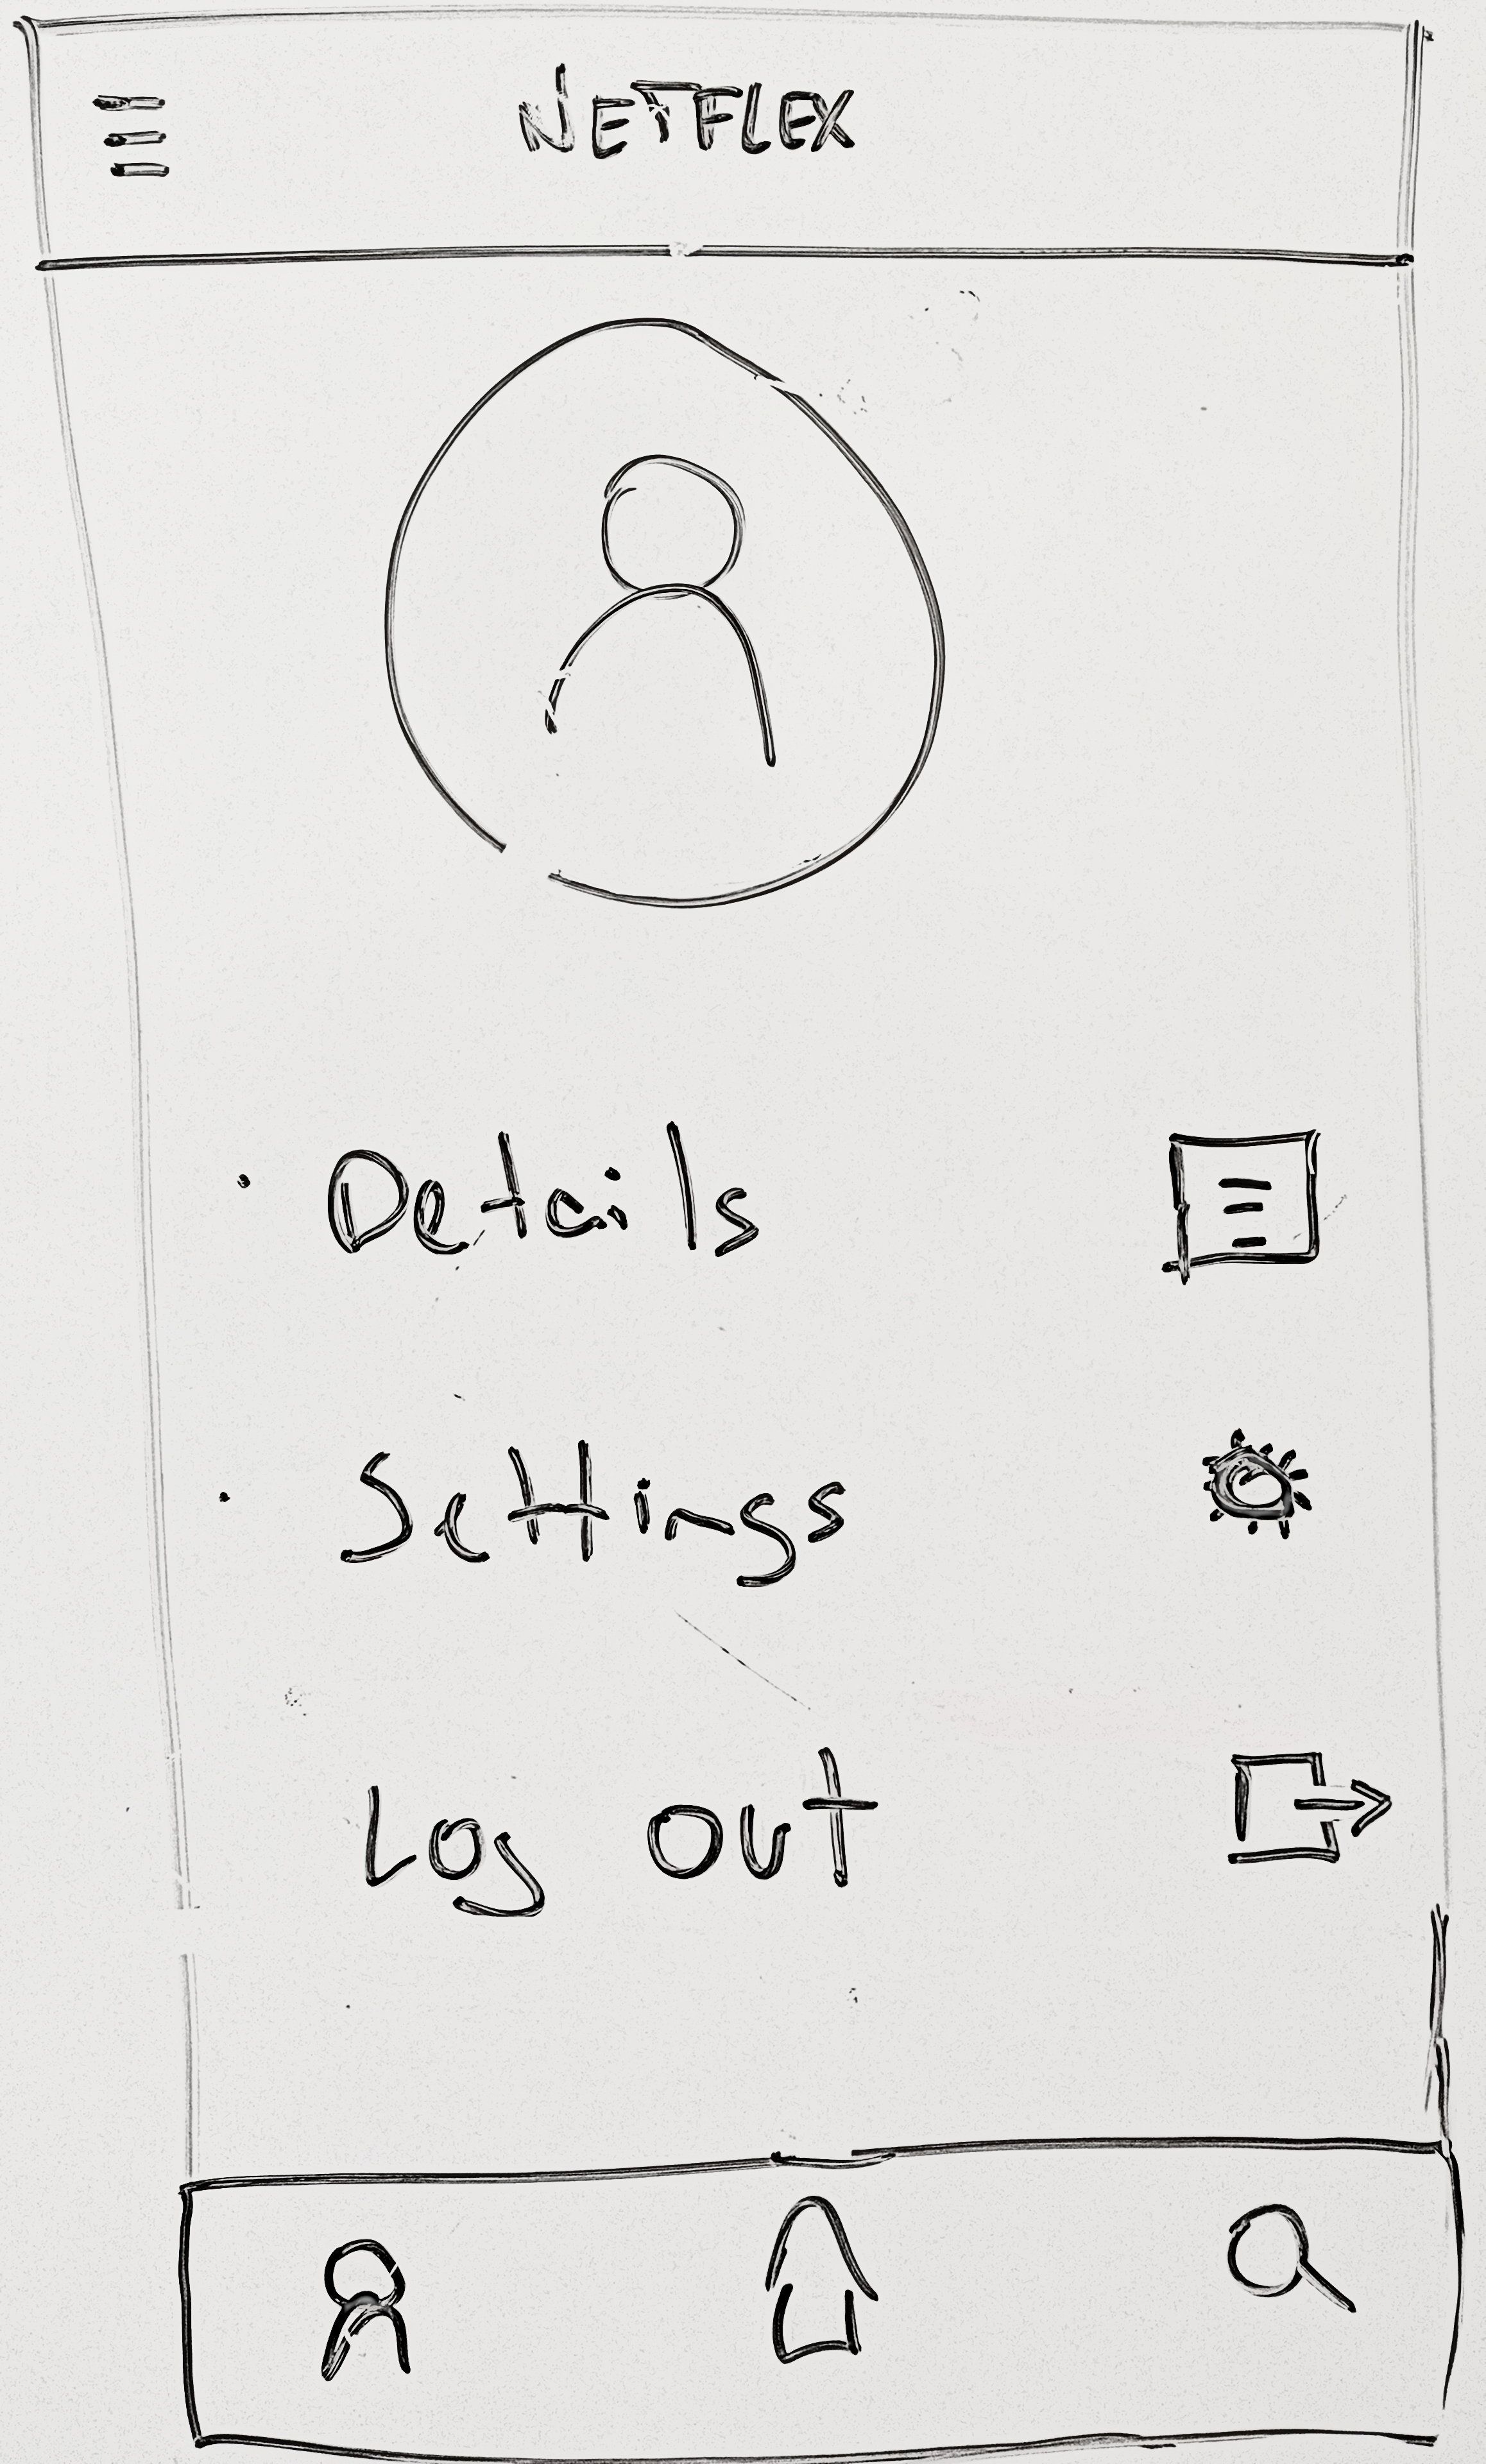 NETFLEX
Details
Settings
Log out